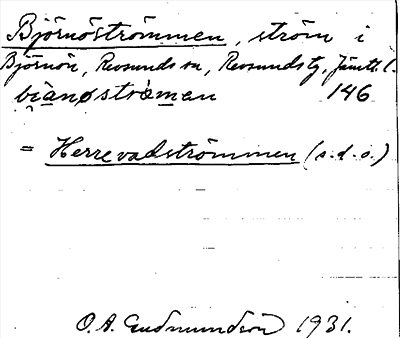 Björnöströmmen, ström i
Björnön, Revsunds sn, Revsunds tg, Jämtl. l.
bianøstrøman 146
= Herrevadströmmen (s.d.o.)
O. A. Gudmundson 1931.